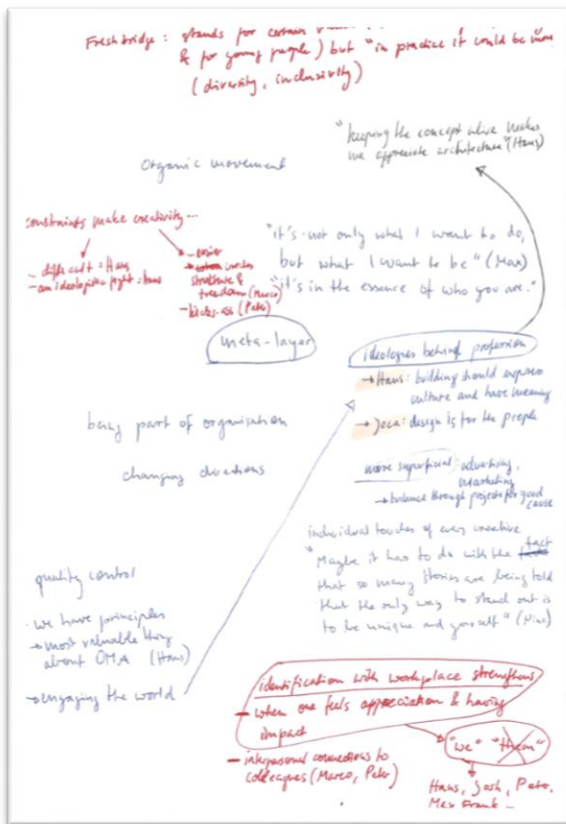 Freshbridge : stands for certain
& for young people) but "in practice it could be more
(diversity, inclusivity)
"keeping the concept alive makes
me appreciate architecture" (Hans)
organic movement
constraints make creativity...
- difficult : Hans
- an ideological fight : Hans
- easier
- creates
structure &
freedom (Marco)
- kicks-ass (Peter)
"it's not only what I want to do,
but what I want to be" (Max)
"it's in the essence of who you are."
meta-layer
ideologies behind profession
→ Hans: building should express
culture and have meaning
→ Joca: design is for the people
being part of organisation
changing directions
more superficial: advertising,
marketing
→ balance through projects for good
cause
individual touches of every creative
"Maybe it has to do with the fact
that so many stories are being told
that the only way to stand out is
to be unique and yourself" (Nina)
quality control
- we have principles
→ most valuable thing
about OMA (Hans)
→ engaging the world
identification with workplace strengthens
- when one feels appreciation & having
impact
"we" "them"
- interpersonal connections to
colleagues (Marco, Peter)
Hans, Josh, Peter,
Max Frank -